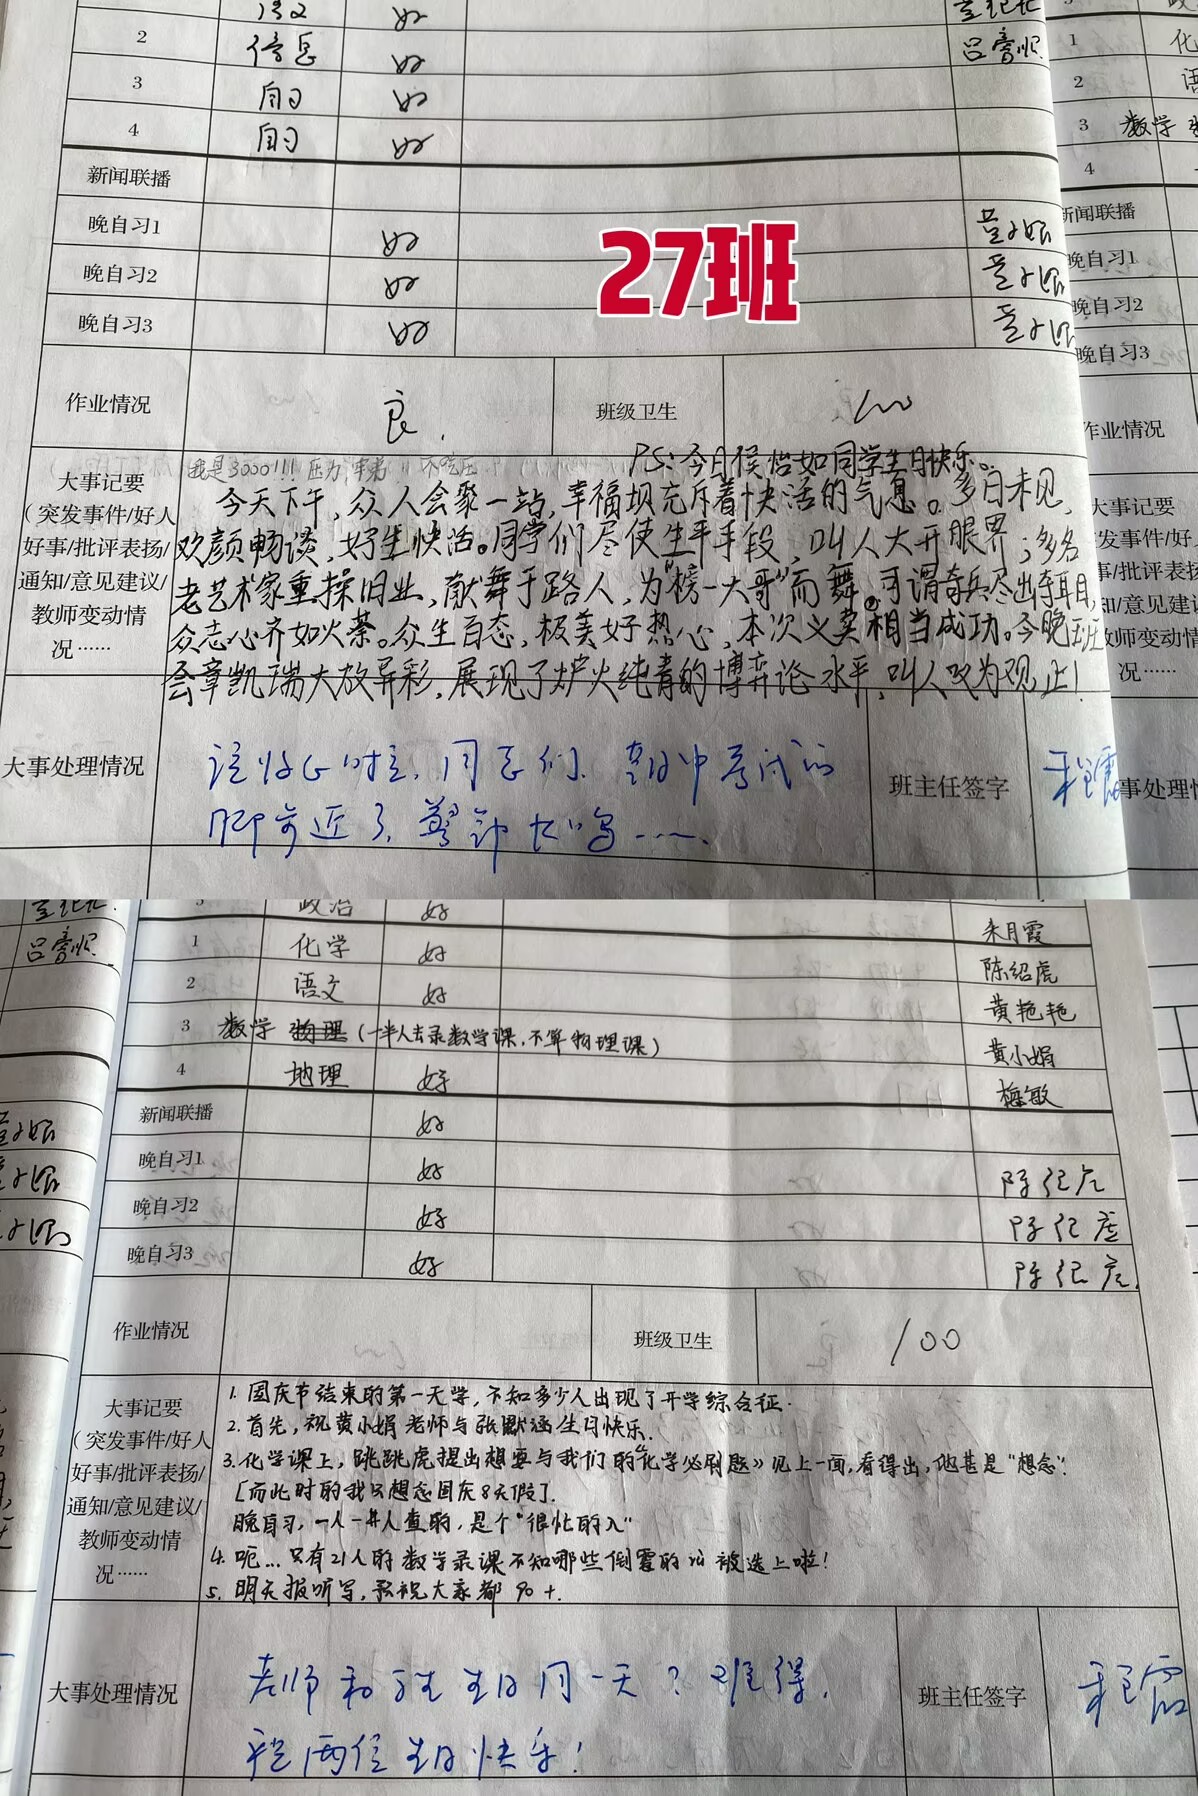 2 信息 好
3 自习 好
4 自习 好
新闻联播
晚自习1 好
晚自习2 好
晚自习3 好
27班
1
2
3 数学
4
新闻联播
晚自习1
晚自习2
晚自习3
作业情况 良. 班级卫生 100
作业情况
大事记要
(突发事件/好人
好事/批评表扬/
通知/意见建议/
教师变动情
况……
我是3000!!!
PS:今日侯怡如同学生日快乐。
今天下午,众人会聚一站,幸福坝充斥着快活的气息。多日未见,
欢颜畅谈,好生快活。同学们尽使生平手段,叫人大开眼界;多名
老艺术家重操旧业,献舞于路人,为“榜一大哥”而舞。可谓奇兵尽出
众志心齐如火荼。众生百态,极美好热心,本次义卖相当成功。今晚班
会章凯瑞大放异彩,展现了炉火纯青的博弈论水平,叫人叹为观止!
大事处理情况
该收心时, 同志们. 期中考试的
脚步近了, 警钟长鸣……
班主任签字 程霞
政治 好 朱月霞
1 化学 好 陈绍虎
2 语文 好 黄艳艳
3 数学 物理 (一半人去录数学课,不算物理课) 黄小娟
4 地理 好 梅敏
新闻联播 好
晚自习1 好 陈绍虎
晚自习2 好 陈绍虎
晚自习3 好 陈绍虎
作业情况 班级卫生 100
大事记要
(突发事件/好人
好事/批评表扬/
通知/意见建议/
教师变动情
况……
1. 国庆节结束的第一天学,不知多少人出现了开学综合征.
2. 首先,祝黄小娟老师与张默涵生日快乐.
3. 化学课上,跳跳虎提出想要与我们的《化学必刷题》见上一面,看得出,他甚是“想念”.
[而此时的我只想念国庆8天假].
晚自习,一人一本人查的,是个“很忙的人”
4. 呃...只有21人的数学录课不知哪些倒霉的被选上啦!
5. 明天报听写,预祝大家都90+.
大事处理情况
老师和学生生日同一天?难得,
祝两位生日快乐!
班主任签字 程霞